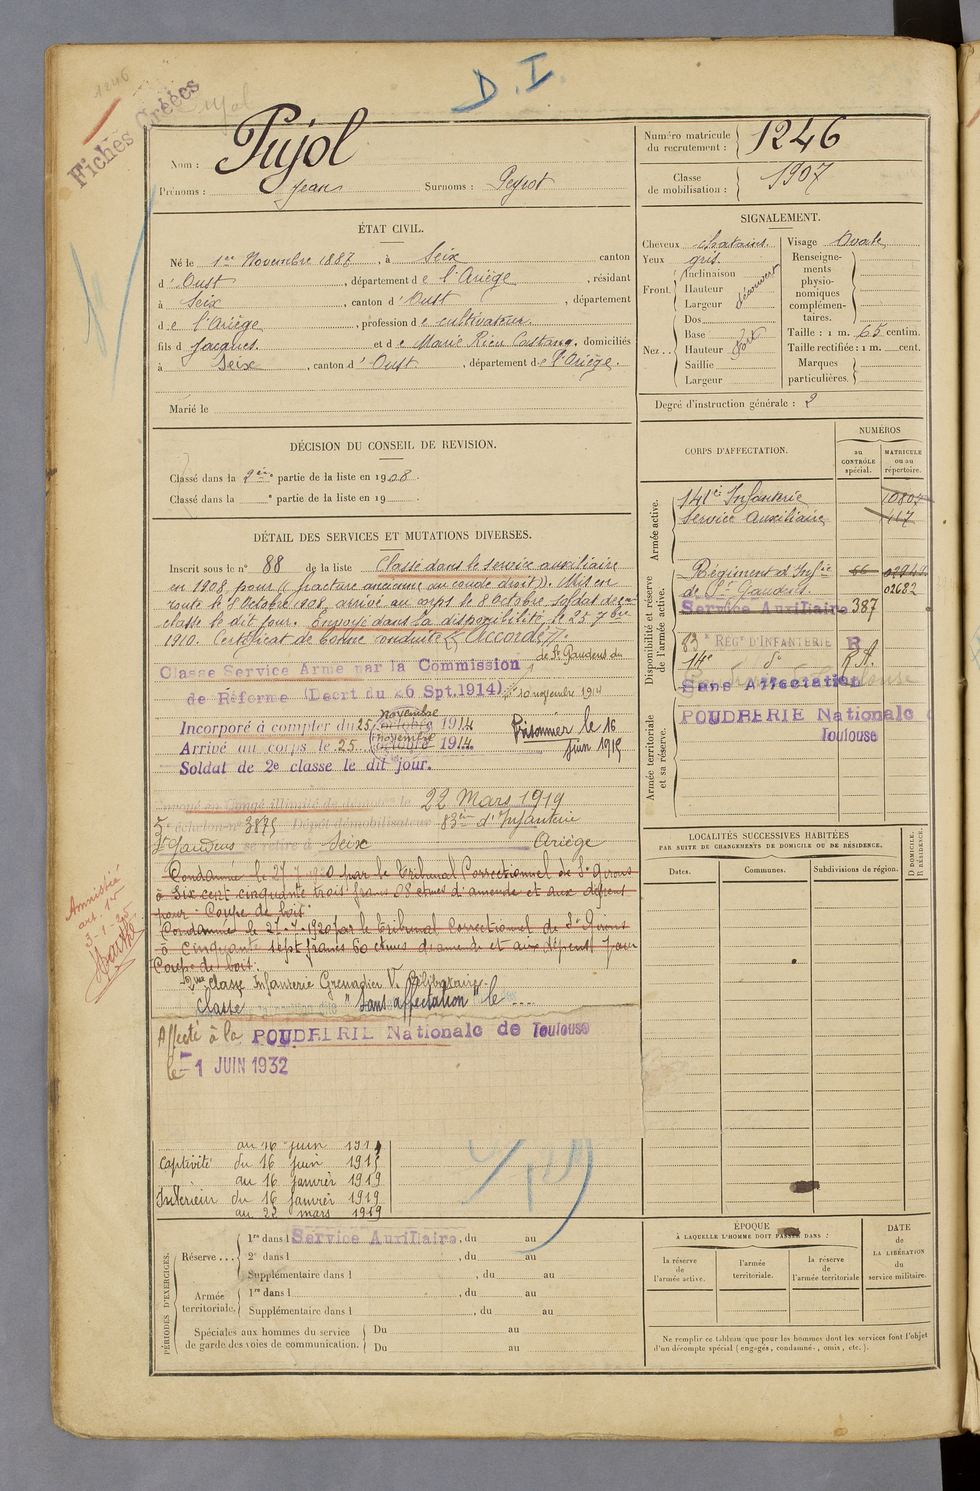 1246
Fiches Créées
Pujol
D. I.
Nom : Pujol
Prénoms : Jean Surnoms : Peyrot
Numéro matricule du recrutement : 1246
Classe de mobilisation : 1907
ÉTAT CIVIL.
Né le 1er Novembre 1887, à Seix canton
d'Oust, département de l'Ariège, résidant
à Seix, canton d'Oust, département
de l'Ariège, profession de cultivateur
fils d Jacques et de Marie Rieu Castaing, domiciliés
à Seix, canton d'Oust, département de l'Ariège.
Marié le
SIGNALEMENT.
Cheveux chatains
Yeux gris
Front. Inclinaison
Hauteur
Largeur
découvert
Nez.. Dos
Base
Hauteur
Saillie
Largeur
fort
Visage Ovale
Renseignements physionomiques complémentaires.
Taille : 1 m. 65 centim.
Taille rectifiée : 1 m. cent.
Marques particulières.
Degré d'instruction générale : 2
DÉCISION DU CONSEIL DE REVISION.
Classé dans la 2e partie de la liste en 1908.
Classé dans la e partie de la liste en 19
DÉTAIL DES SERVICES ET MUTATIONS DIVERSES.
Inscrit sous le n° 88 de la liste Classé dans le service auxiliaire
en 1908 pour (( fracture ancienne au coude droit)). Mis en
route le 8 Octobre 1908, arrivé au corps le 8 Octobre, soldat de 2e
classe le dit jour. Envoyé dans la disponibilité le 25 7bre
1910. Certificat de bonne conduite (( Accordé )).
Classé Service Armé par la Commission de St Gaudens du
de Réforme (Décrt du 26 Spt.1914) 10 novembre 1914
Incorporé à compter du 25 octobre novembre 1914
Arrivé au corps le 25 octobre novembre 1914.
Soldat de 2e classe le dit jour.
Prisonnier le 16
juin 1915
Envoyé en Congé illimité de démob le 22 Mars 1919
5e échelon n° 3875 Dépôt démobilisateur 83ème d'Infanterie
St Gaudens se retire à Seix Ariège
Condamné le 27-7-1920 par le Tribunal Correctionnel de St Girons
à Six cent cinquante trois francs 08 ctmes d'amende et aux dépens
pour : Coupe de bois.
Condamné le 27-7-1920 par le Tribunal Correctionnel de St Girons
à Cinquante sept francs 60 ctmes d'amende et aux dépens pour
Coupe de bois.
Amnistié
art. 1er
3-1-25
2me classe Infanterie Grenadier V. Célibataire.
Classé "Sans affectation" le ....
Affecté à la POUDRERIE Nationale de Toulouse
le - 1 JUIN 1932
au 16 juin 1915
Captivité du 16 juin 1915
au 16 janvier 1919
Intérieur du 16 janvier 1919
au 22 mars 1919
CORPS D'AFFECTATION.
NUMÉROS
au CONTRÔLE spécial.
MATRICULE ou au répertoire.
Armée active.
141e Infanterie 10804
Service Auxiliaire 417
Disponibilité et réserve de l'armée active.
Régiment d'Infie 66 02949
de St Gaudens. 02682
Service Auxiliaire 387
83e REGt D'INFANTERIE R
14e do R.A.
Sans Affectation
Armée territoriale et sa réserve.
POUDRERIE Nationale d
Toulouse
LOCALITÉS SUCCESSIVES HABITÉES
PAR SUITE DE CHANGEMENTS DE DOMICILE OU DE RÉSIDENCE.
Dates. Communes. Subdivisions de région. D DOMICILE. R RÉSIDENCE.
PÉRIODES D'EXERCICES.
Réserve ... 1re dans l Service Auxiliaire, du au
2e dans l , du au
Supplémentaire dans l , du au
Armée territoriale. 1re dans l , du au
Supplémentaire dans l , du au
Spéciales aux hommes du service de garde des voies de communication. Du au
Du au
ÉPOQUE
À LAQUELLE L'HOMME DOIT PASSER DANS :
la réserve de l'armée active.
l'armée territoriale.
la réserve de l'armée territoriale
DATE de LA LIBÉRATION du service militaire.
Ne remplir ce tableau que pour les hommes dont les services font l'objet
d'un décompte spécial (engagés, condamnés, omis, etc.).